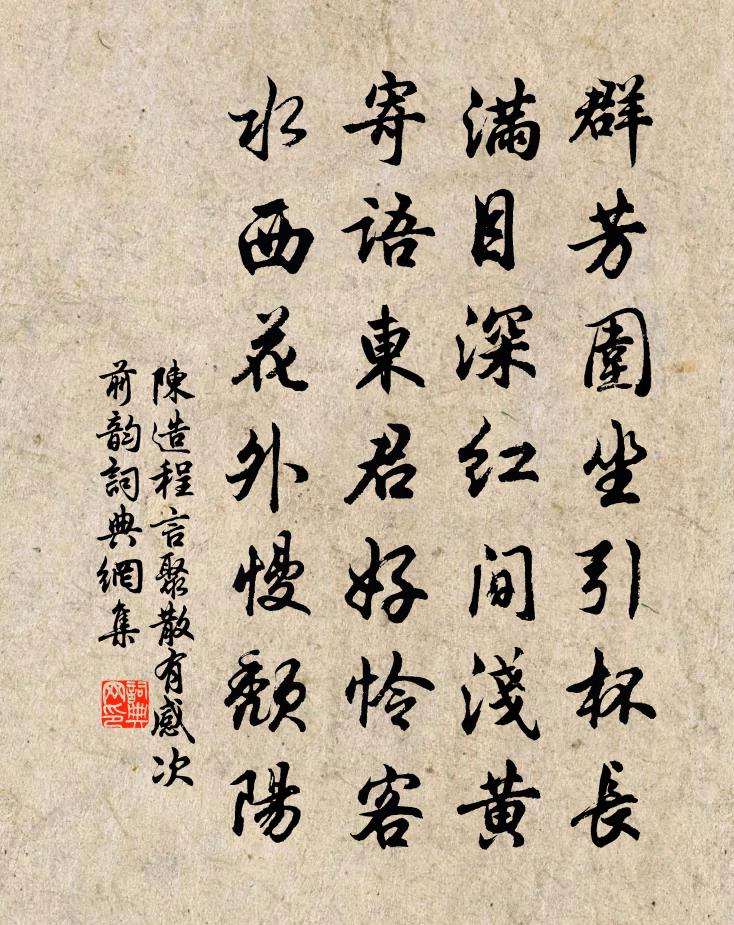 群芳圍坐引杯長
滿目深紅間淺黃
寄語東君好怜客
水西花外慢頹陽
陳造程言聚散有感次
前韵詞典網集
詞典网印